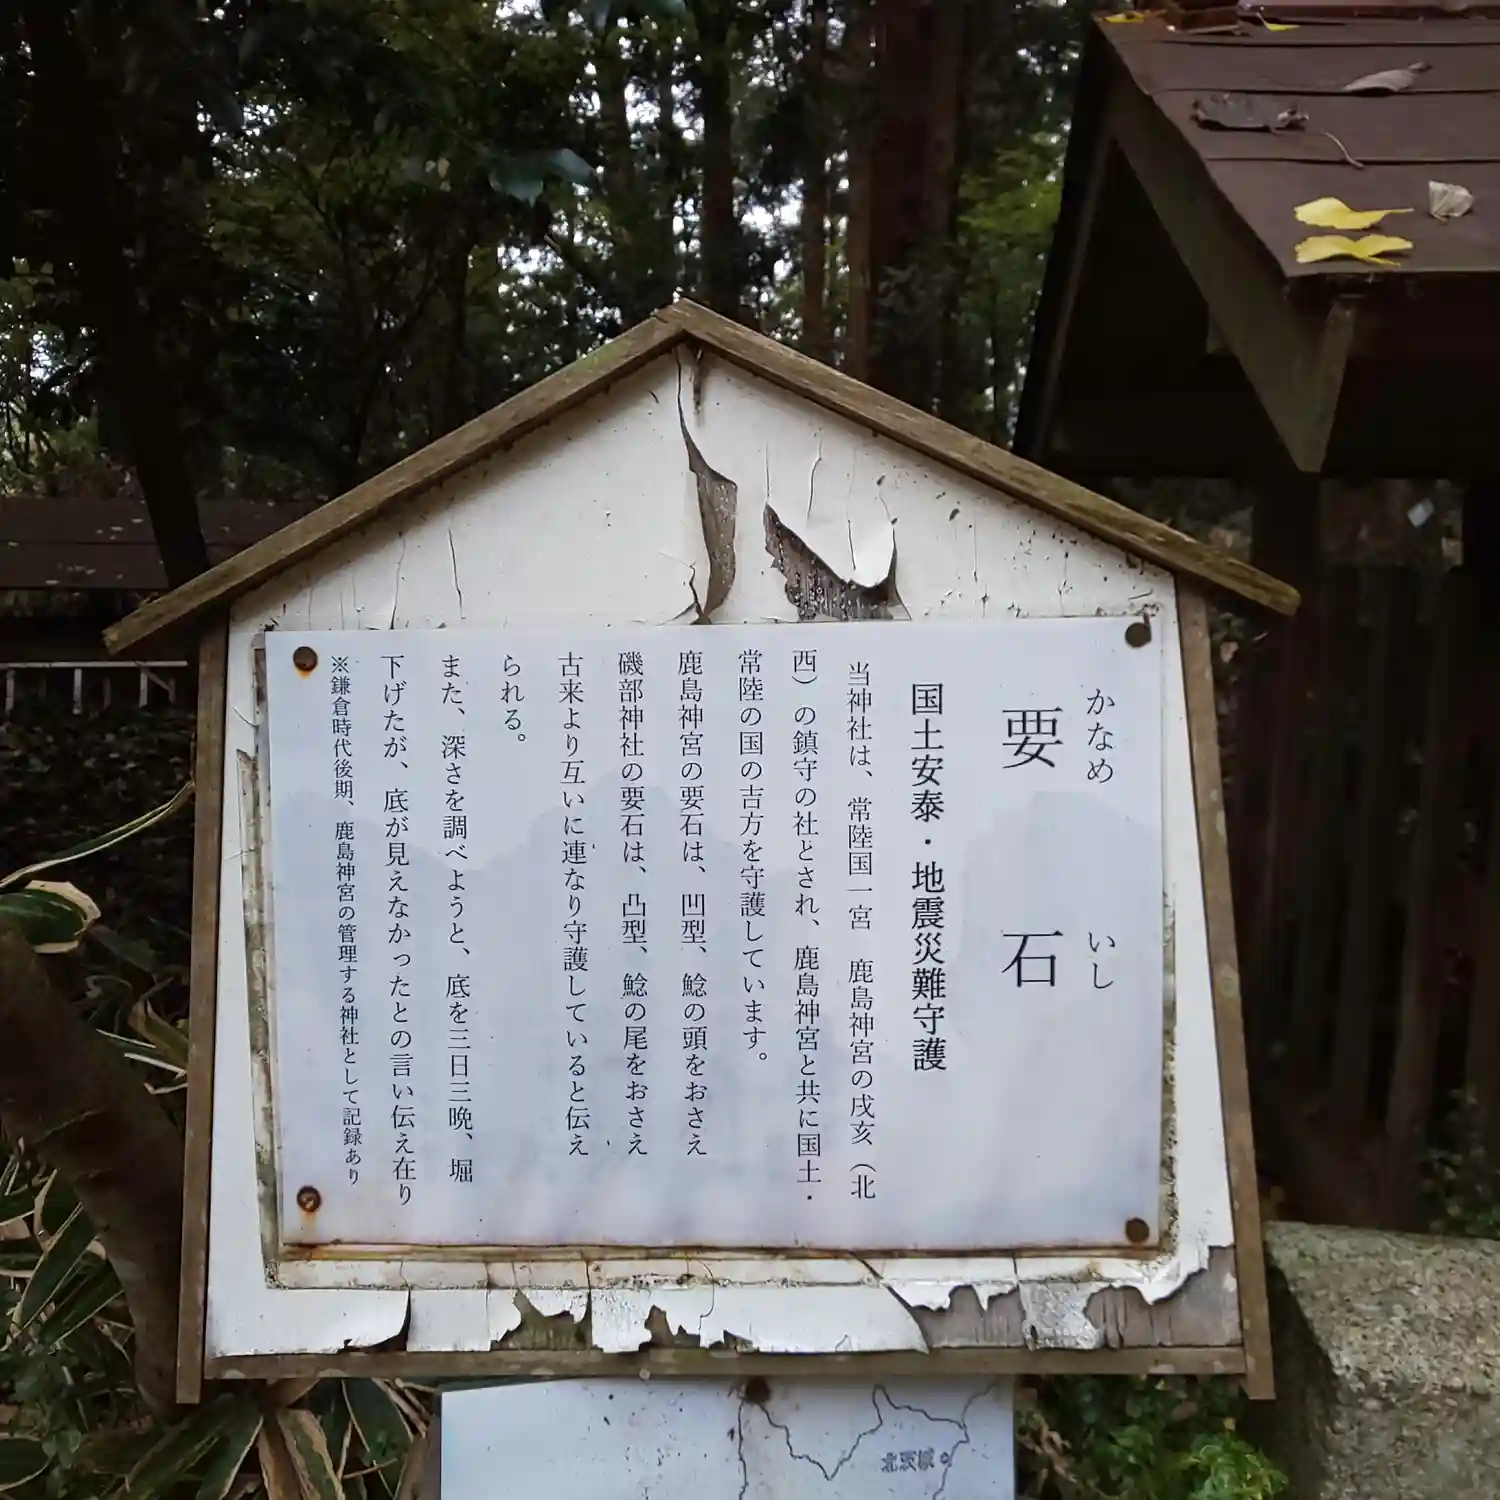 かなめ いし
要石
国土安泰・地震災難守護
当神社は、常陸国一宮 鹿島神宮の戌亥（北
西）の鎮守の社とされ、鹿島神宮と共に国土・
常陸の国の吉方を守護しています。
鹿島神宮の要石は、凹型、鯰の頭をおさえ
磯部神社の要石は、凸型、鯰の尾をおさえ
古来より互いに連なり守護していると伝え
られる。
また、深さを調べようと、底を三日三晩、堀
下げたが、底が見えなかったとの言い伝え在り
※鎌倉時代後期、鹿島神宮の管理する神社として記録あり
北茨城